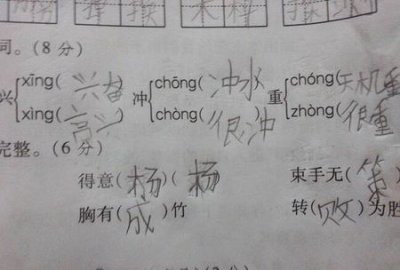 词。(8 分)
xīng(兴奋 chōng(冲水 chóng(天机重
兴 冲 重
xìng(高兴 chòng(很冲 zhòng(很重
完整。(6 分)
得意(杨)(杨 束手无(策
胸有(成)竹 转(败)为胜